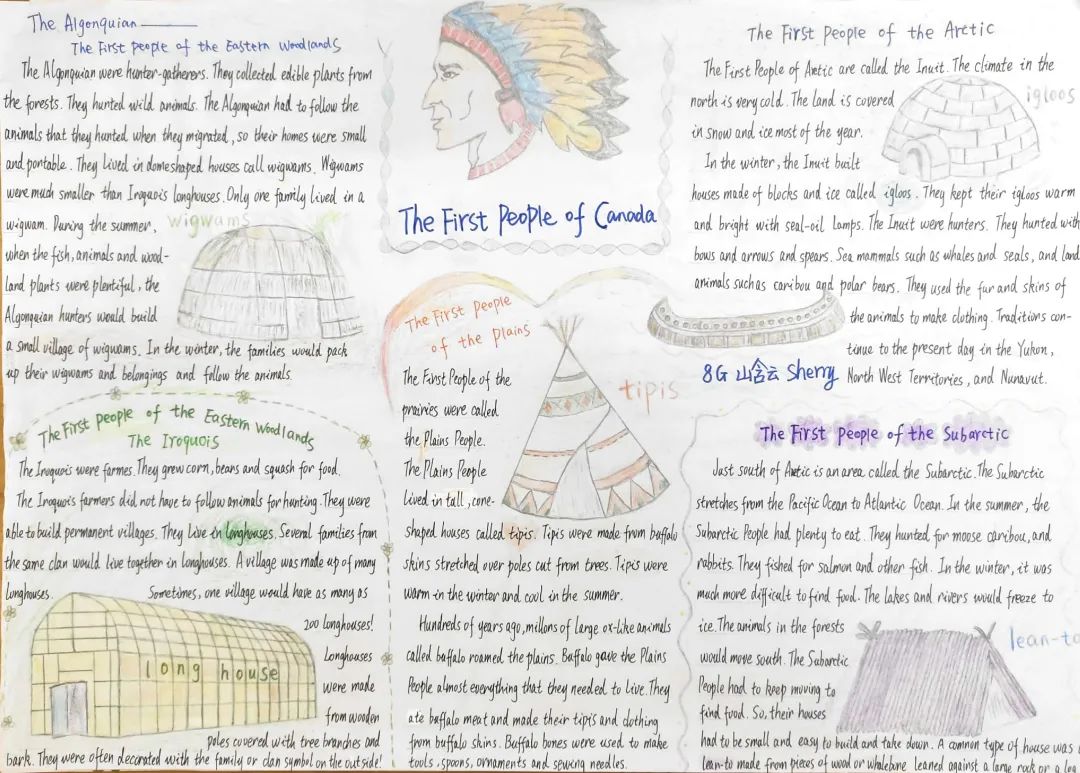 The Algonquian
The First people of the Eastern Woodlands
The Algonquian were hunter-gatherers. They collected edible plants from
the forests. They hunted wild animals. The Algonquian had to follow the
animals that they hunted when they migrated, so their homes were small
and portable. They lived in domeshaped houses call wigwams. Wigwams
were much smaller than Iroquois longhouses. Only one family lived in a
wigwam. During the summer,
when the fish, animals and wood-
land plants were plentiful, the
Algonquian hunters would build
a small village of wigwams. In the winter, the families would pack
up their wigwams and belongings and follow the animals.
wigwams
The First people of the Eastern Woodlands
The Iroquois
The Iroquois were farmes. They grew corn, beans and squash for food.
The Iroquois farmers did not have to follow animals for hunting. They were
able to build permanent villages. They Live in longhouses. Several families from
the same clan would live together in longhouses. A village was made up of many
longhouses. Sometimes, one village would have as many as
200 longhouses!
Longhouses
were made
from wooden
poles covered with tree branches and
bark. They were often decorated with the family or clan symbol on the outside!
long house
The First People of Canada
The First People
of the Plains
The First People of the
prairies were called
the Plains People.
The Plains People
lived in tall, cone-
shaped houses called tipis. Tipis were made from buffalo
skins stretched over poles cut from trees. Tipis were
warm in the winter and cool in the summer.
Hundreds of years ago, millons of large ox-like animals
called buffalo roamed the plains. Buffalo gave the Plains
People almost everything that they needed to live. They
ate buffalo meat and made their tipis and clothing
from buffalo skins. Buffalo bones were used to make
tools, spoons, ornaments and sewing needles.
tipis
The First People of the Arctic
The First People of Arctic are called the Inuit. The climate in the
north is very cold. The land is covered
in snow and ice most of the year.
In the winter, the Inuit built
houses made of blocks and ice called igloos. They kept their igloos warm
and bright with seal-oil lamps. The Inuit were hunters. They hunted with
bows and arrows and spears. Sea mammals such as whales and seals, and land
animals such as caribou and polar bears. They used the fur and skins of
the animals to make clothing. Traditions con-
tinue to the present day in the Yukon,
North West Territories, and Nunavut.
igloos
8G 山含云 Sherry
The First People of the Subarctic
Just south of Arctic is an area called the Subarctic. The Subarctic
stretches from the Pacific Ocean to Atlantic Ocean. In the summer, the
Subarctic People had plenty to eat. They hunted for moose caribou, and
rabbits. They fished for salmon and other fish. In the winter, it was
much more difficult to find food. The lakes and rivers would freeze to
ice. The animals in the forests
would move south. The Subarctic
People had to keep moving to
find food. So, their houses
had to be small and easy to build and take down. A common type of house was
lean-to made from pieces of wood or whalebone leaned against a large rock or a
lean-to